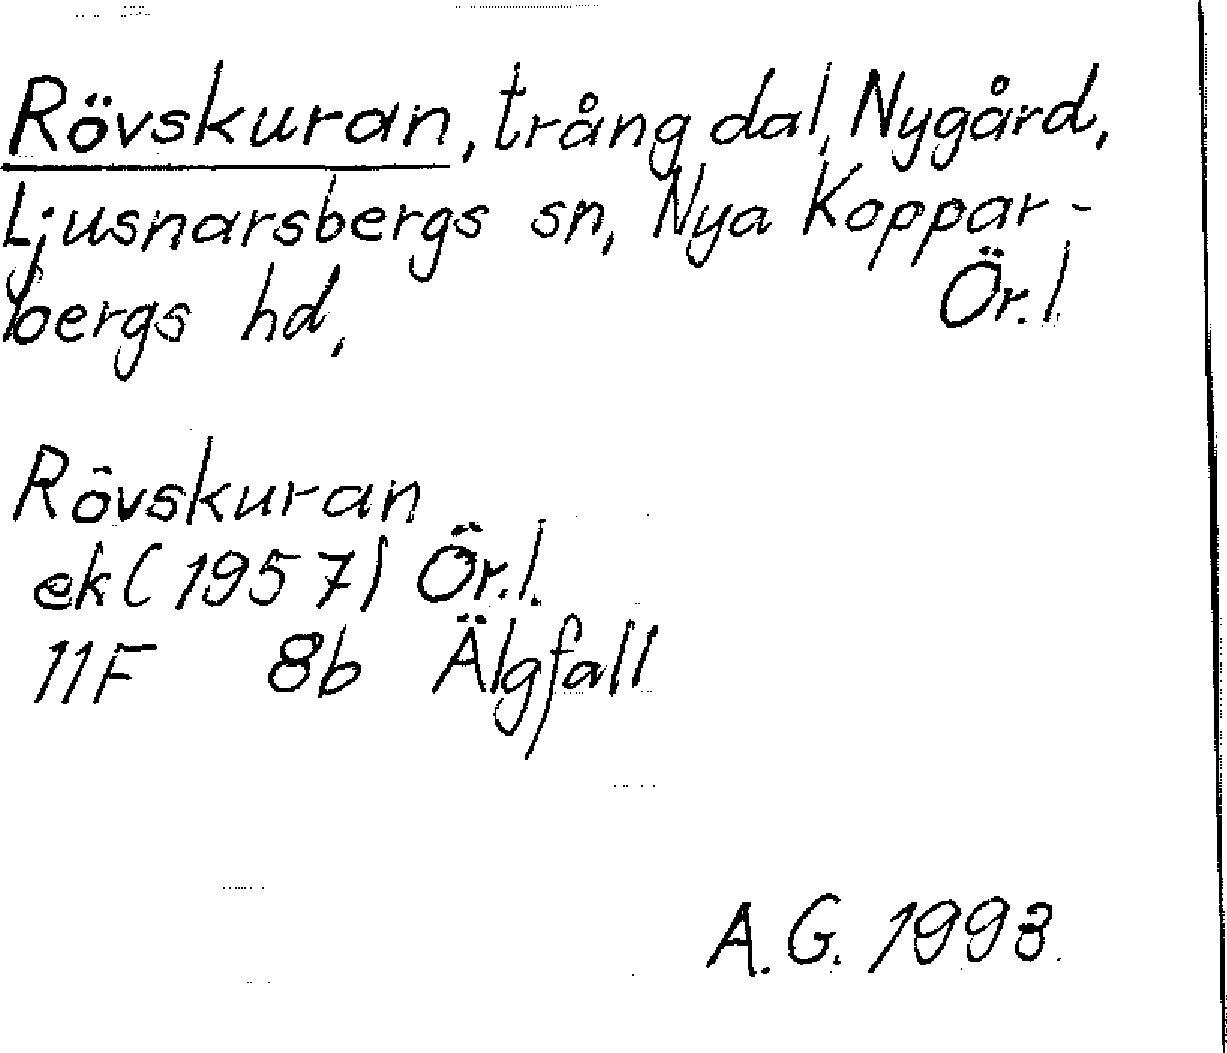 Rövskuran, trång dal, Nygård,
Ljusnarsbergs sn, Nya Koppar-
bergs hd, Ör.l.
Rövskuran
ek (1957) Ör.l.
11F 8b Älgfall
A.G. 1993.